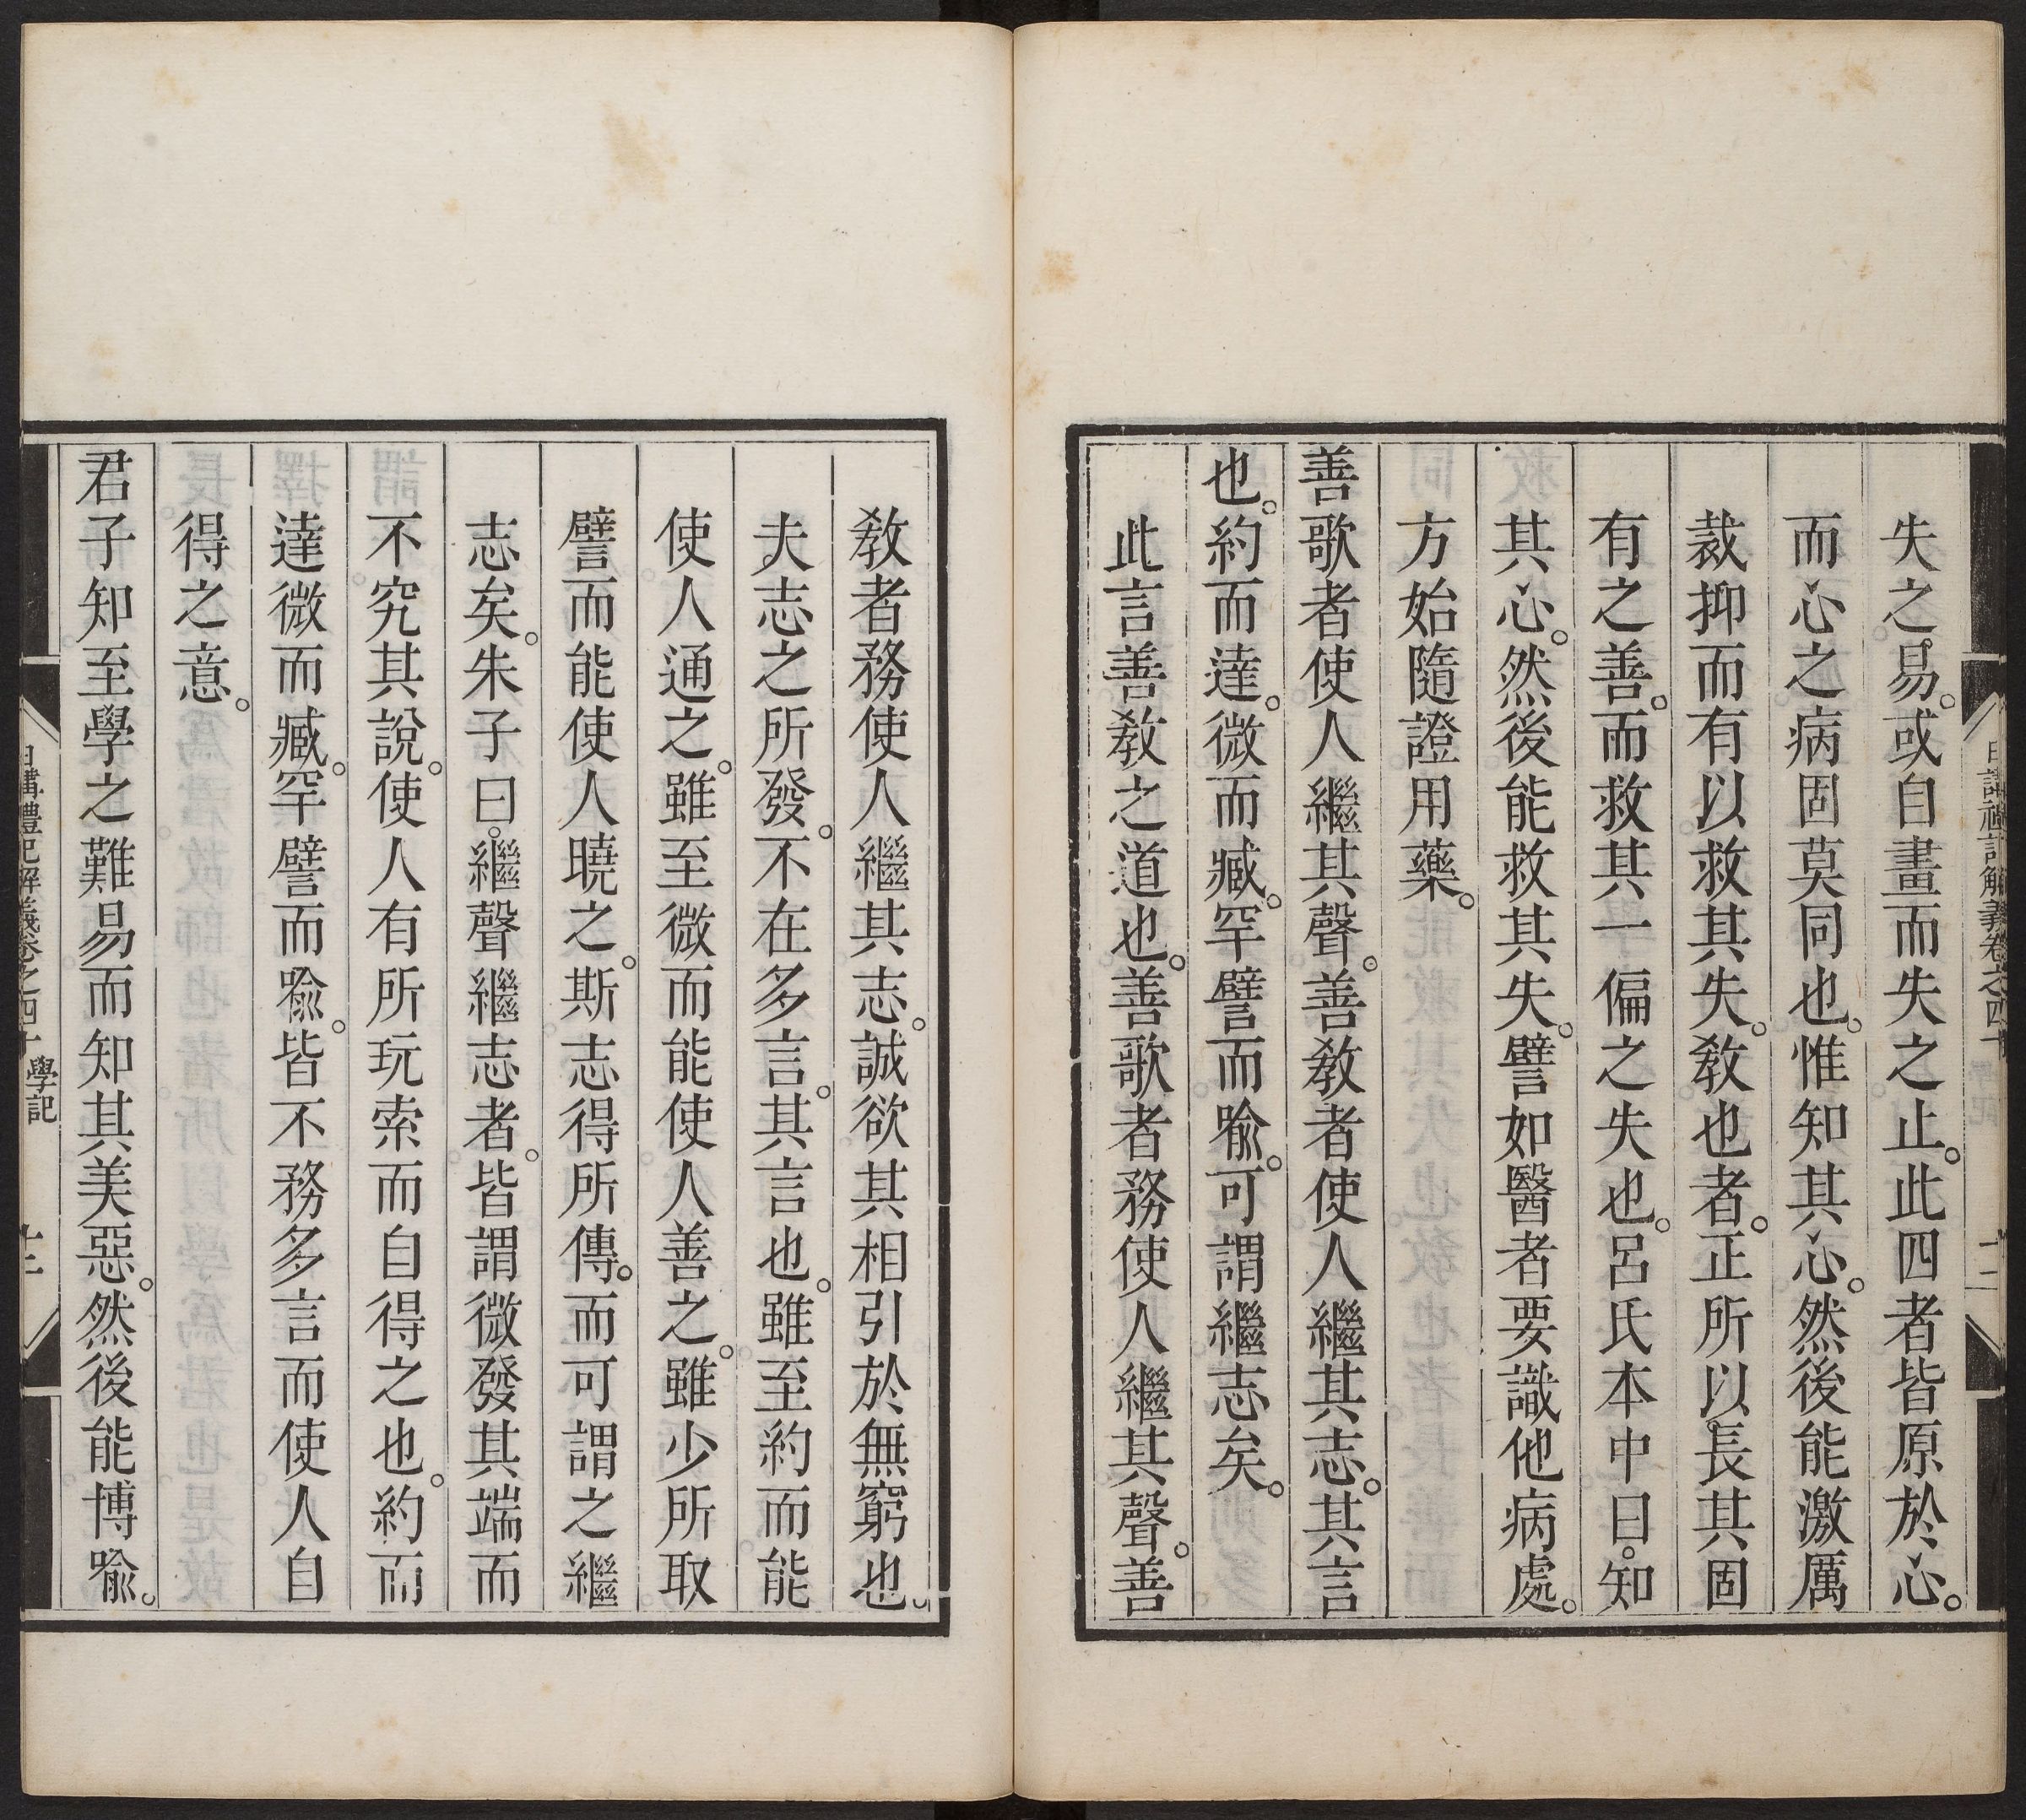 失之易。或自畫而失之止。此四者皆原於心。
而心之病固莫同也。惟知其心。然後能激厲
裁抑而有以救其失。教也者。正所以長其固
有之善。而救其一偏之失也。呂氏本中曰。知
其心。然後能救其失。譬如醫者要識他病處。
方始隨證用藥。
善歌者使人繼其聲。善教者使人繼其志。其言
也。約而達。微而臧。罕譬而喻。可謂繼志矣。
此言善教之道也。善歌者務使人繼其聲。善
教者務使人繼其志。誠欲其相引於無窮也。
夫志之所發。不在多言。其言也。雖至約而能
使人通之。雖至微而能使人善之。雖少所取
譬而能使人曉之。斯志得所傳。而可謂之繼
志矣。朱子曰。繼聲繼志者。皆謂微發其端而
不究其說。使人有所玩索而自得之也。約而
達微而臧。罕譬而喻。皆不務多言而使人自
得之意。
君子知至學之難易而知其美惡。然後能博喻。
日講禮記解義卷之四十 學記 十二